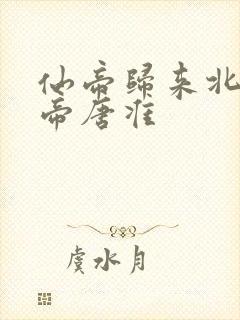 仙帝归来北
帝唐淮
虞水月